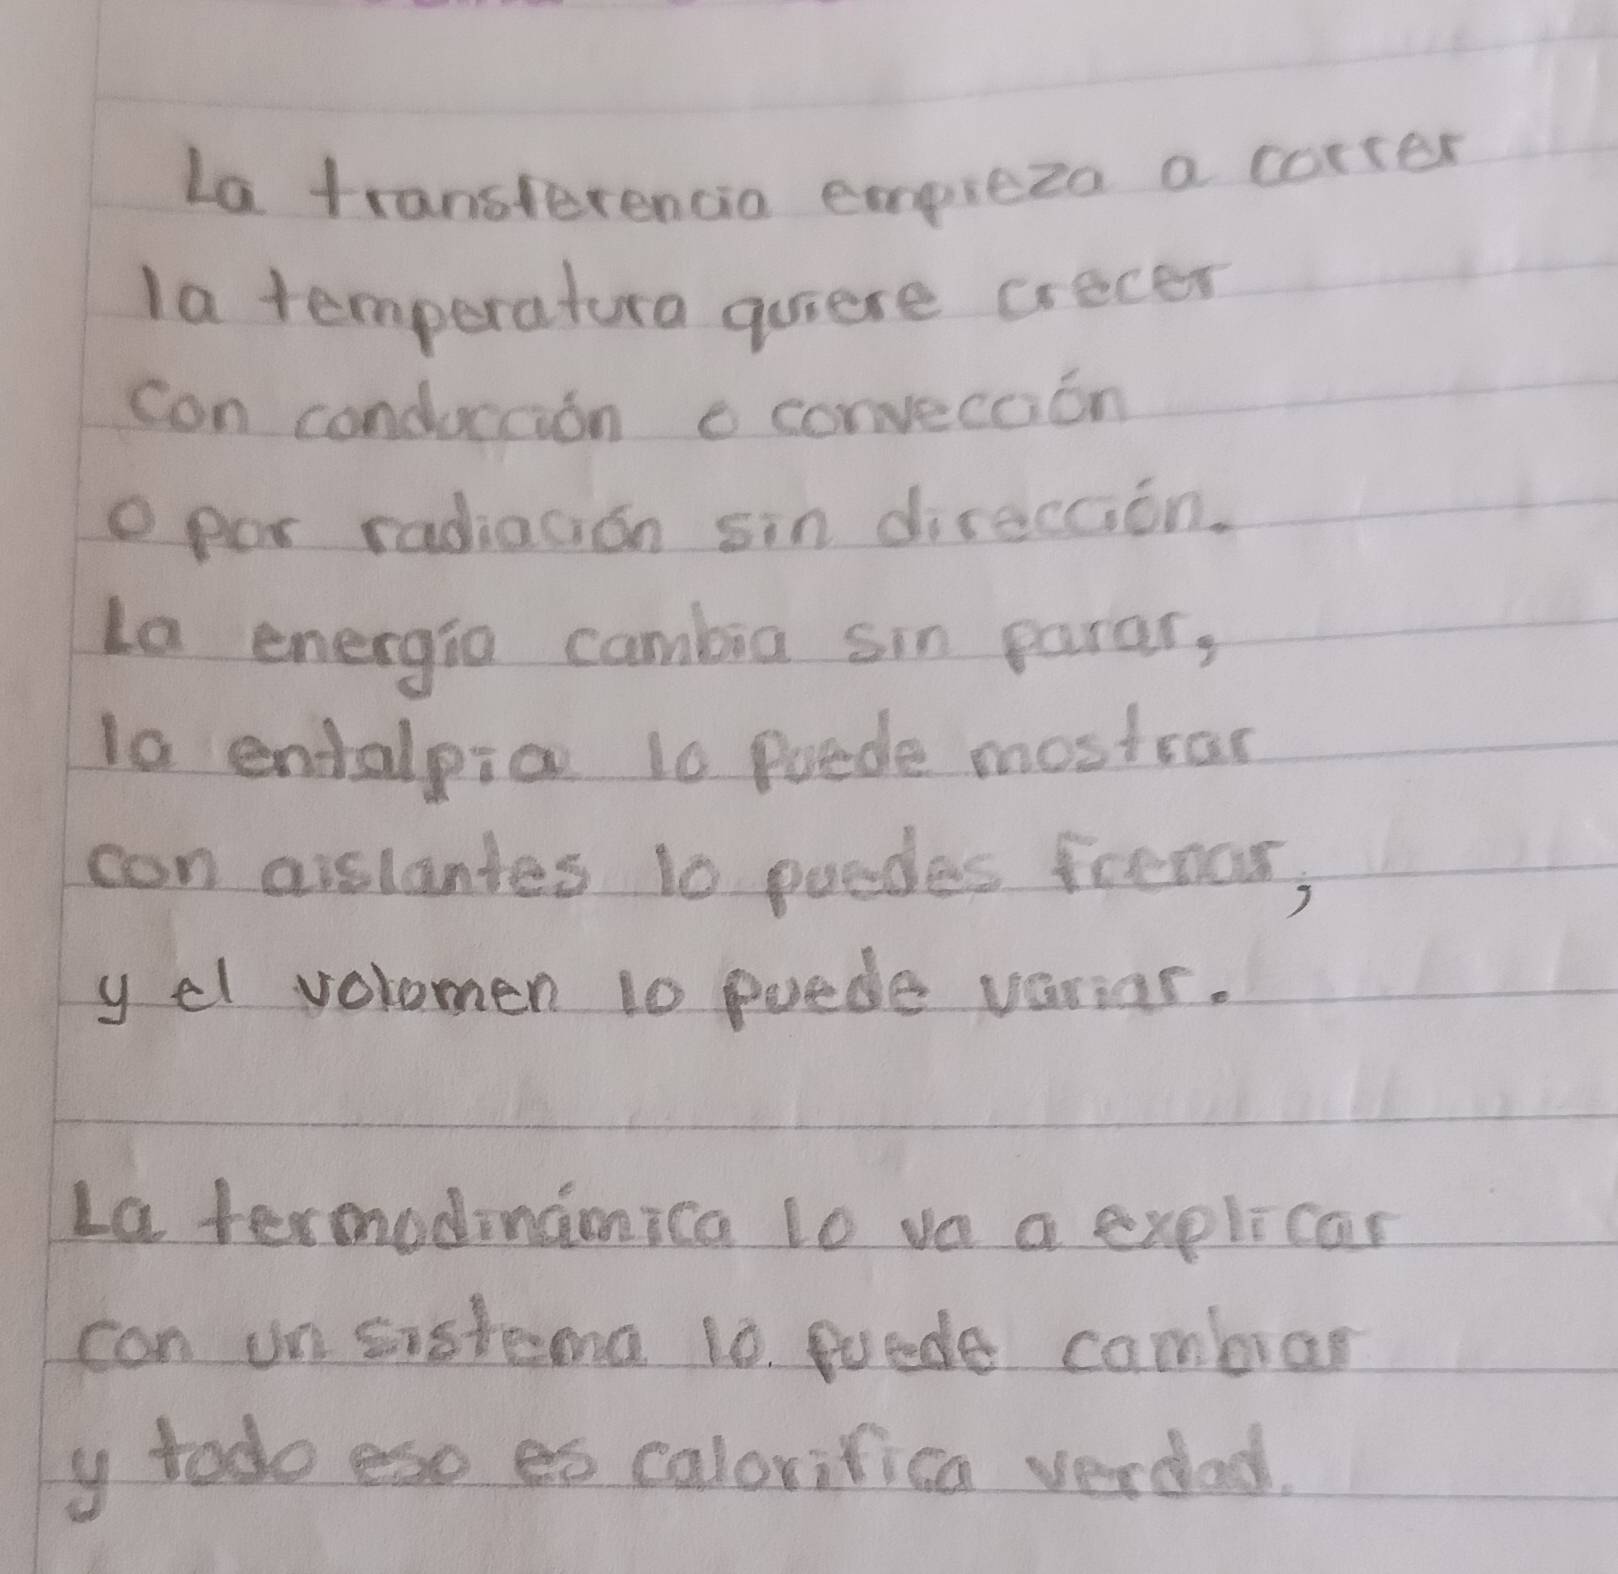 La transferencia empieza a correr
la temperatura quiere crecer
con conducción o convección
o por radiación sin dirección.
La energía cambia sin parar,
la entalpia lo puede mostrar
con aislantes lo puedes frenar,
y el volumen lo puede variar.
La termodinámica lo va a explicar
con un sistema lo puede cambiar
y todo eso es calorifica verdad.